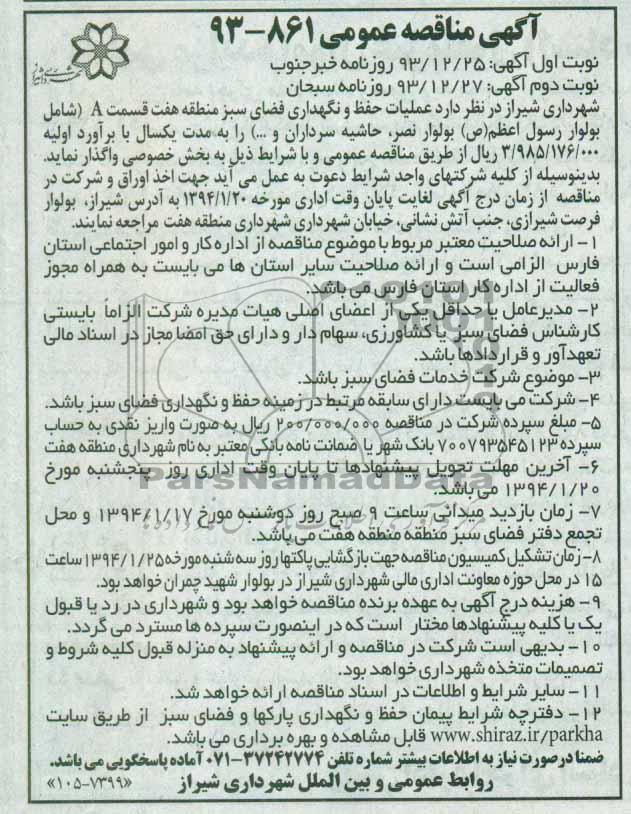 آگهی مناقصه عمومی ۸۶۱-۹۳
نوبت اول آگهی: ۹۳/۱۲/۲۵ روزنامه خبرجنوب
نوبت دوم آگهی: ۹۳/۱۲/۲۷ روزنامه سبحان
شهرداری شیراز در نظر دارد عملیات حفظ و نگهداری فضای سبز منطقه هفت قسمت A (شامل
بولوار رسول اعظم(ص) بولوار نصر، حاشیه سرداران و ...) را به مدت یکسال با برآورد اولیه
۳/۹۸۵/۱۷۶/۰۰۰ ریال از طریق مناقصه عمومی و با شرایط ذیل به بخش خصوصی واگذار نماید.
بدینوسیله از کلیه شرکتهای واجد شرایط دعوت به عمل می آید جهت اخذ اوراق و شرکت در
مناقصه از زمان درج آگهی لغایت پایان وقت اداری مورخه ۱۳۹۴/۱/۲۰ به آدرس شیراز، بولوار
فرصت شیرازی، جنب آتش نشانی، خیابان شهرداری شهرداری منطقه هفت مراجعه نمایند.
۱- ارائه صلاحیت معتبر مربوط با موضوع مناقصه از اداره کار و امور اجتماعی استان
فارس الزامی است و ارائه صلاحیت سایر استان ها می بایست به همراه مجوز
فعالیت از اداره کار استان فارس می باشد.
۲- مدیرعامل یا حداقل یکی از اعضای اصلی هیات مدیره شرکت الزاماً بایستی
کارشناس فضای سبز یا کشاورزی، سهام دار و دارای حق امضا مجاز در اسناد مالی
تعهدآور و قراردادها باشد.
۳- موضوع شرکت خدمات فضای سبز باشد.
۴- شرکت می بایست دارای سابقه مرتبط در زمینه حفظ و نگهداری فضای سبز باشد.
۵- مبلغ سپرده شرکت در مناقصه ۲۰۰/۰۰۰/۰۰۰ ریال به صورت واریز نقدی به حساب
سپرده ۷۰۰۷۹۳۵۴۵۱۲۳ بانک شهر یا ضمانت نامه بانکی معتبر به نام شهرداری منطقه هفت
۶- آخرین مهلت تحویل پیشنهادها تا پایان وقت اداری روز پنجشنبه مورخ
۱۳۹۴/۱/۲۰ می باشد.
۷- زمان بازدید میدانی ساعت ۹ صبح روز دوشنبه مورخ ۱۳۹۴/۱/۱۷ و محل
تجمع دفتر فضای سبز منطقه منطقه هفت می باشد.
۸- زمان تشکیل کمیسیون مناقصه جهت بازگشایی پاکتها روز سه شنبه مورخه ۱۳۹۴/۱/۲۵ ساعت
۱۵ در محل حوزه معاونت اداری مالی شهرداری شیراز در بولوار شهید چمران خواهد بود.
۹- هزینه درج آگهی به عهده برنده مناقصه خواهد بود و شهرداری در رد یا قبول
یک یا کلیه پیشنهادها مختار است که در اینصورت سپرده ها مسترد می گردد.
۱۰- بدیهی است شرکت در مناقصه و ارائه پیشنهاد به منزله قبول کلیه شروط و
تصمیمات متخذه شهرداری خواهد بود.
۱۱- سایر شرایط و اطلاعات در اسناد مناقصه ارائه خواهد شد.
۱۲- دفترچه شرایط پیمان حفظ و نگهداری پارکها و فضای سبز از طریق سایت
www.shiraz.ir/parkha قابل مشاهده و بهره برداری می باشد.
ضمنا در صورت نیاز به اطلاعات بیشتر شماره تلفن ۳۷۲۴۲۷۷۴-۰۷۱ آماده پاسخگویی می باشد.
روابط عمومی و بین الملل شهرداری شیراز «۱۰۵-۷۳۹۹»
ParsNamadData